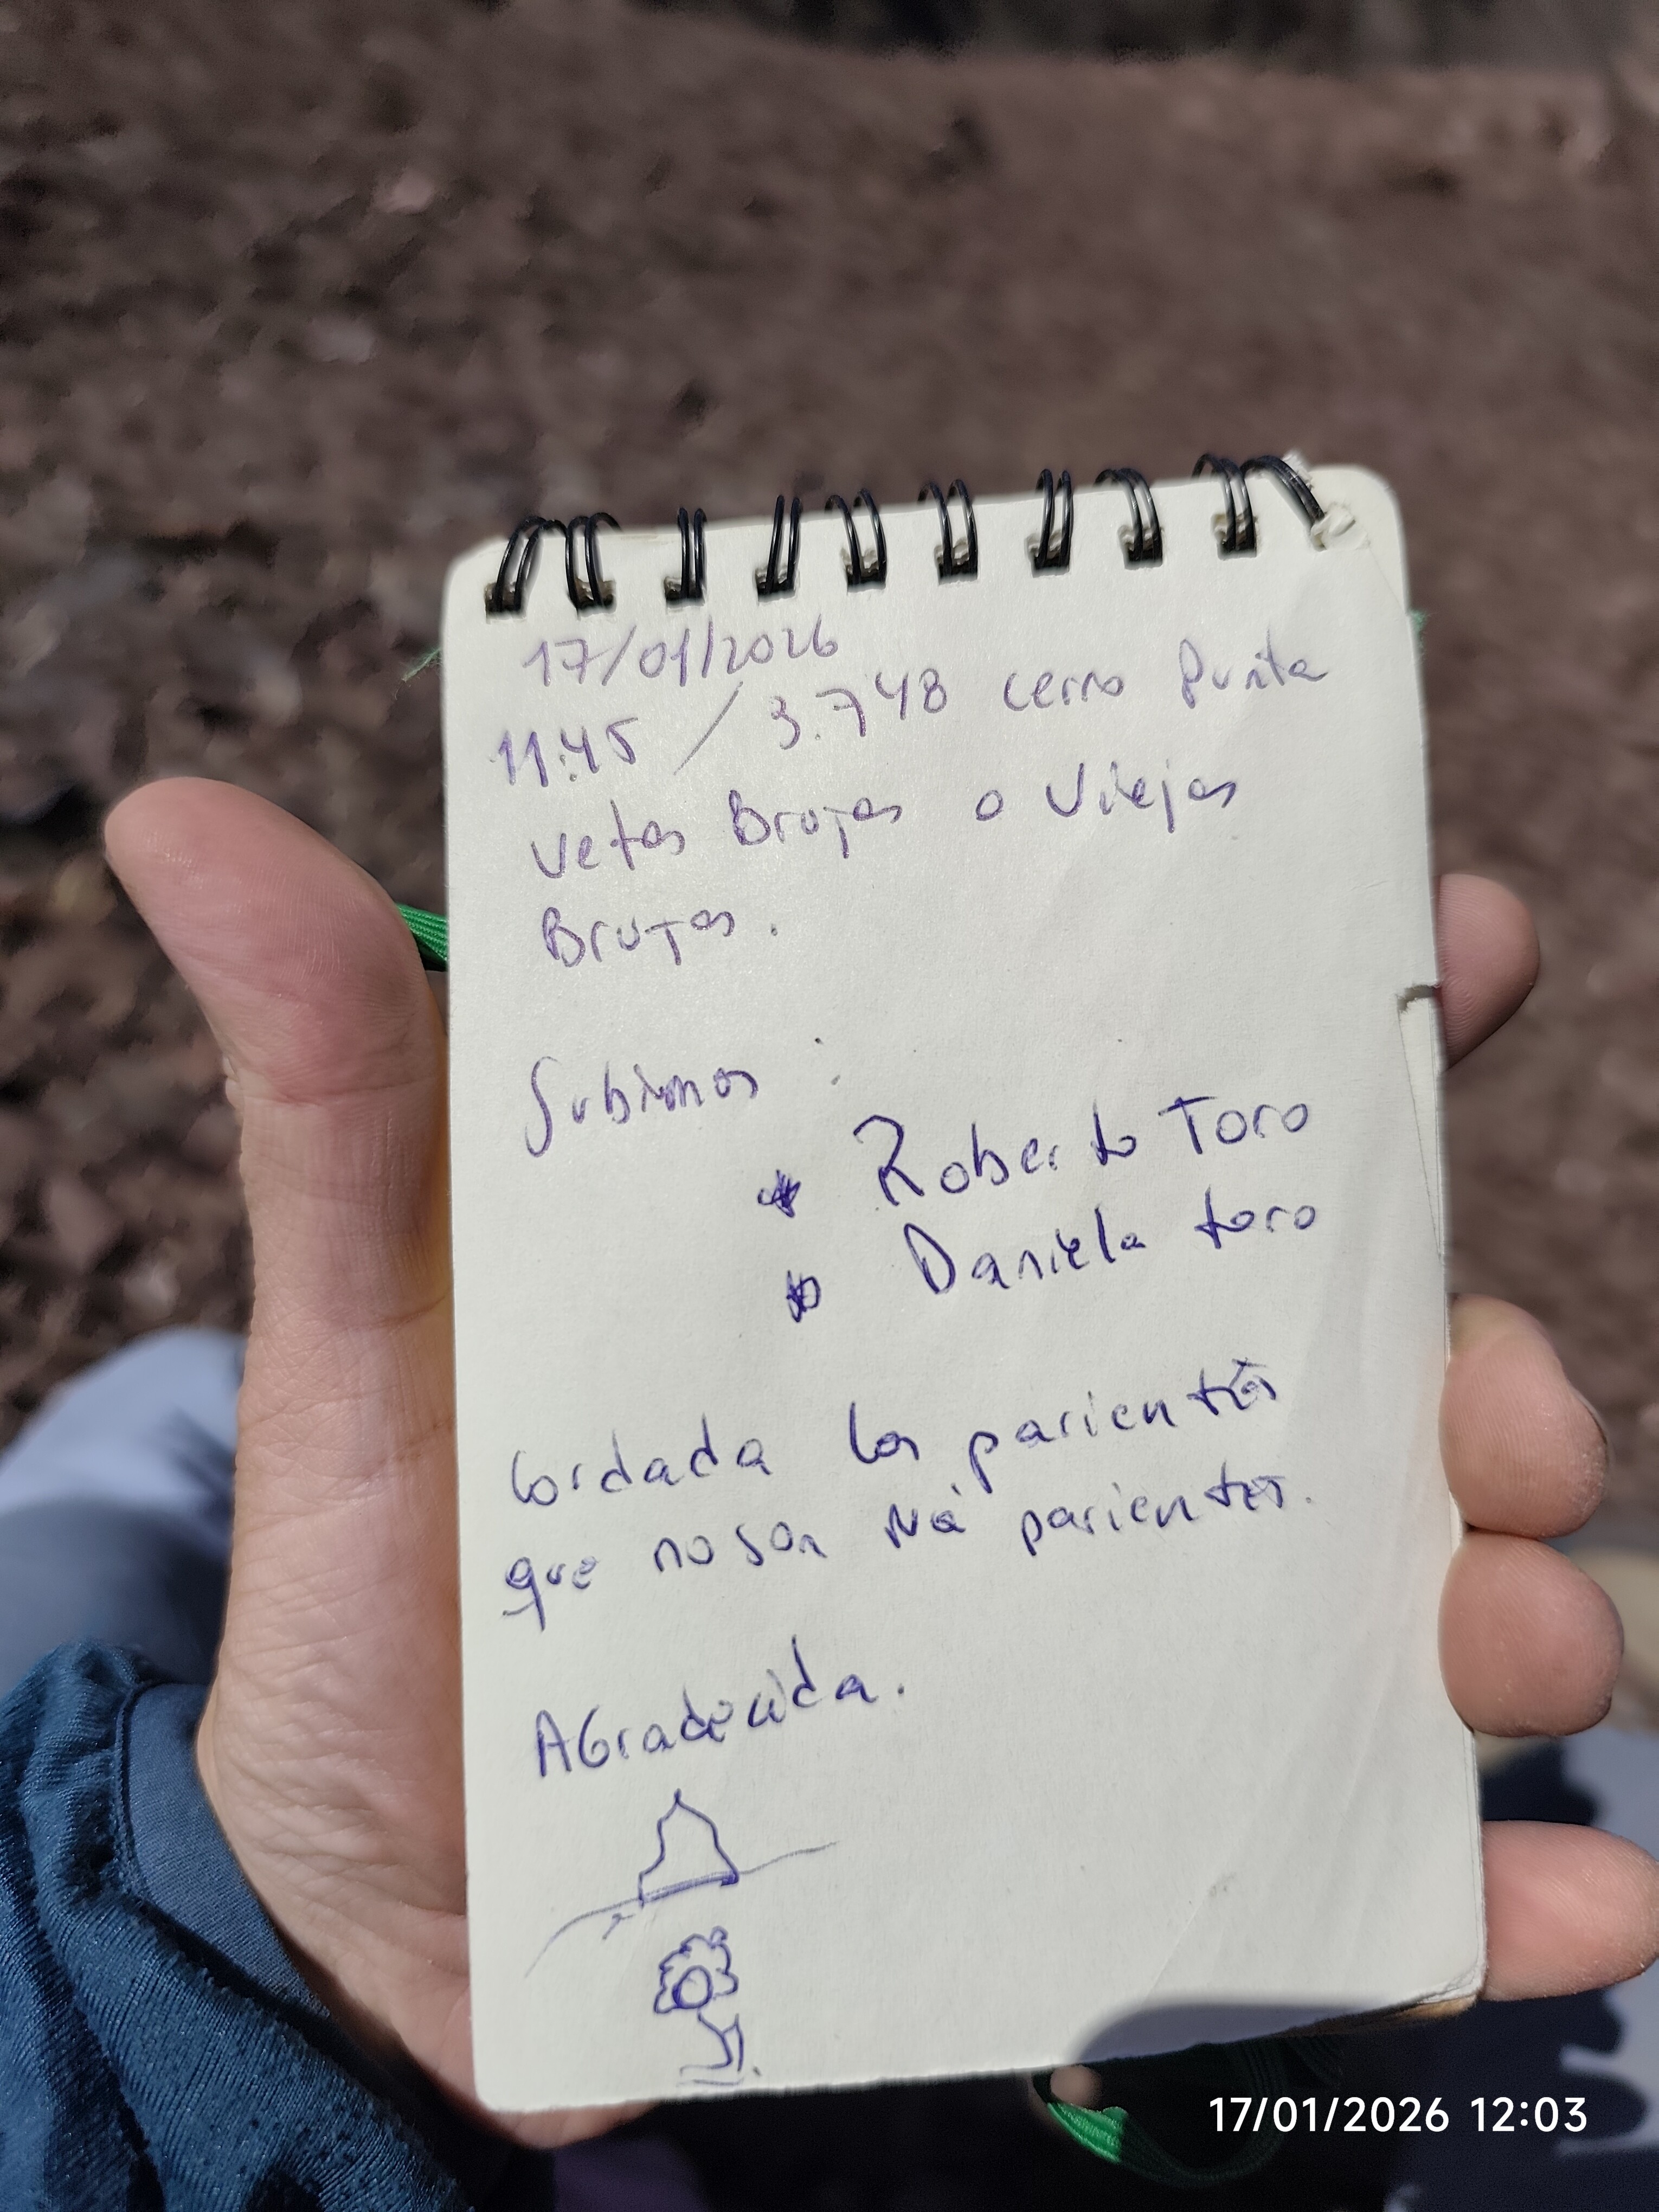 17/01/2026
11:45 / 3.748 cerro Punta
vetas Brujas o Viejas
Brujas.
Subimos :
* Roberto Toro
* Daniela toro
Cordada los parientes
que no son ná parientes.
AGradecida.
17/01/2026 12:03